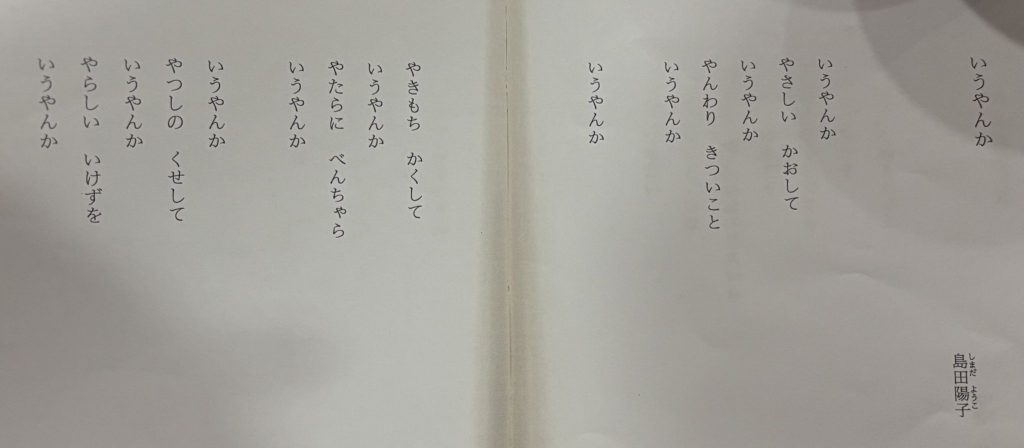 いうやんか
島田陽子
しまだ ようこ
いうやんか
やさしい　かおして
いうやんか
やんわり　きついこと
いうやんか
いうやんか
やきもち　かくして
いうやんか
やたらに　べんちゃら
いうやんか
いうやんか
やつしの　くせして
いうやんか
やらしい　いけずを
いうやんか